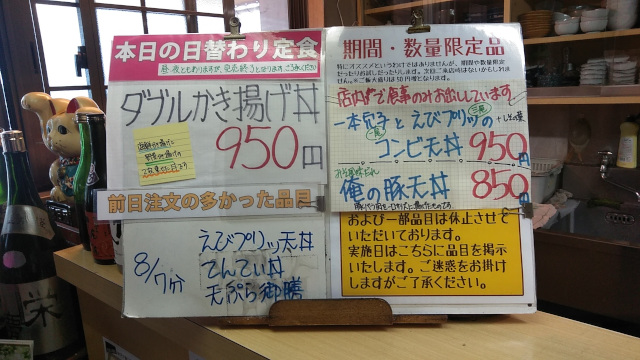 本日の日替わり定食
昼・夜ともありますが、完売終了となります。ご了承ください
ダブルかき揚げ丼
950円
前日注文の多かった品目
8/7分
えびプリッツ天丼
てんてい丼
天ぷら御膳
期間・数量限定品
店内でご食事のみお出ししています
一本穴子とえびプリッツの
コンビ天丼 950円
俺の豚天丼 850円
および一部品目は休止させて
いただいております。
実施日はこちらに品目を掲示
いたします。ご迷惑をお掛け
しますがご了承ください。
栄